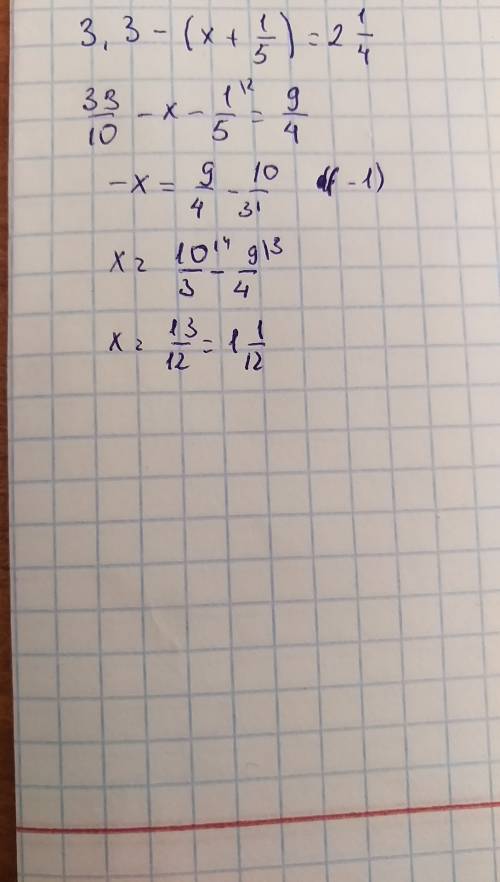 3,3 - (x + 1/5) = 2 1/4
33/10 - x - 1/5 \2 = 9/4
-x = 9/4 - 10/3 (· -1)
x = 10/3 \4 - 9/4 \3
x = 13/12 = 1 1/12